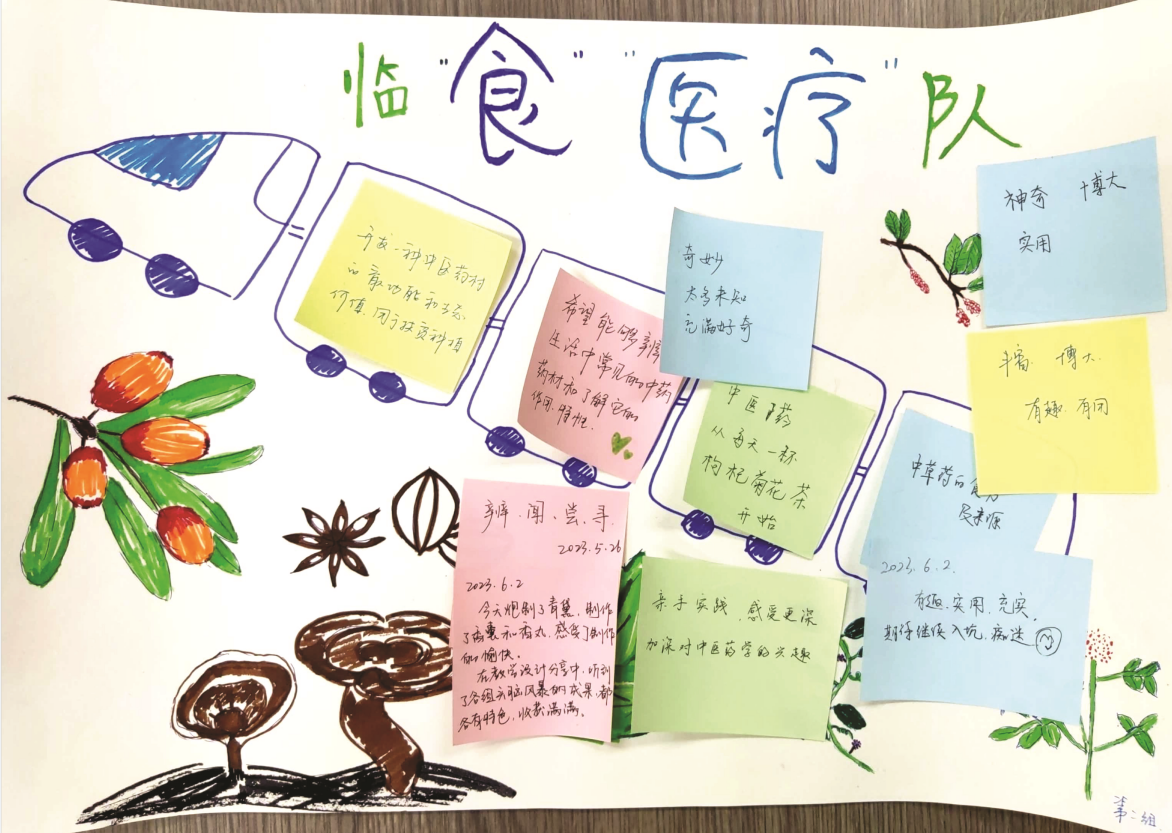 临"食""医疗"队
开发一种中医药材
的最功能和生态
价值,用于投资种植
希望能够辨认
生活中常见的中药
药材和了解它的
作用、特性.
奇妙
太多未知
充满好奇
中医药
从每天一杯
枸杞菊花茶
开始
神奇 博大
实用
丰富. 博大.
有趣. 有用
中草药的
及来源
辨、闻、尝、寻.
2023.5.26
2023.6.2
今天炮制了青黛,制作
了香囊和香丸,感受了制作
的愉快.
在教学设计分享中,听到
了各组头脑风暴的成果,都
各有特色,收获满满。
亲手实践,感受更深
加深对中医药学的兴趣
2023.6.2.
有趣、实用、充实,
期待继续入坑,痴迷
第二组